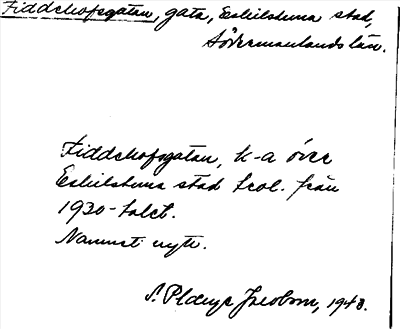 Fiddehofsgatan, gata, Eskilstuna stad,
Södermanlands län.
Fiddehofsgatan, k-a över
Eskilstuna stad trol. från
1930-talet.
Namnet nytt.
S. Plange Jacobson, 1943.